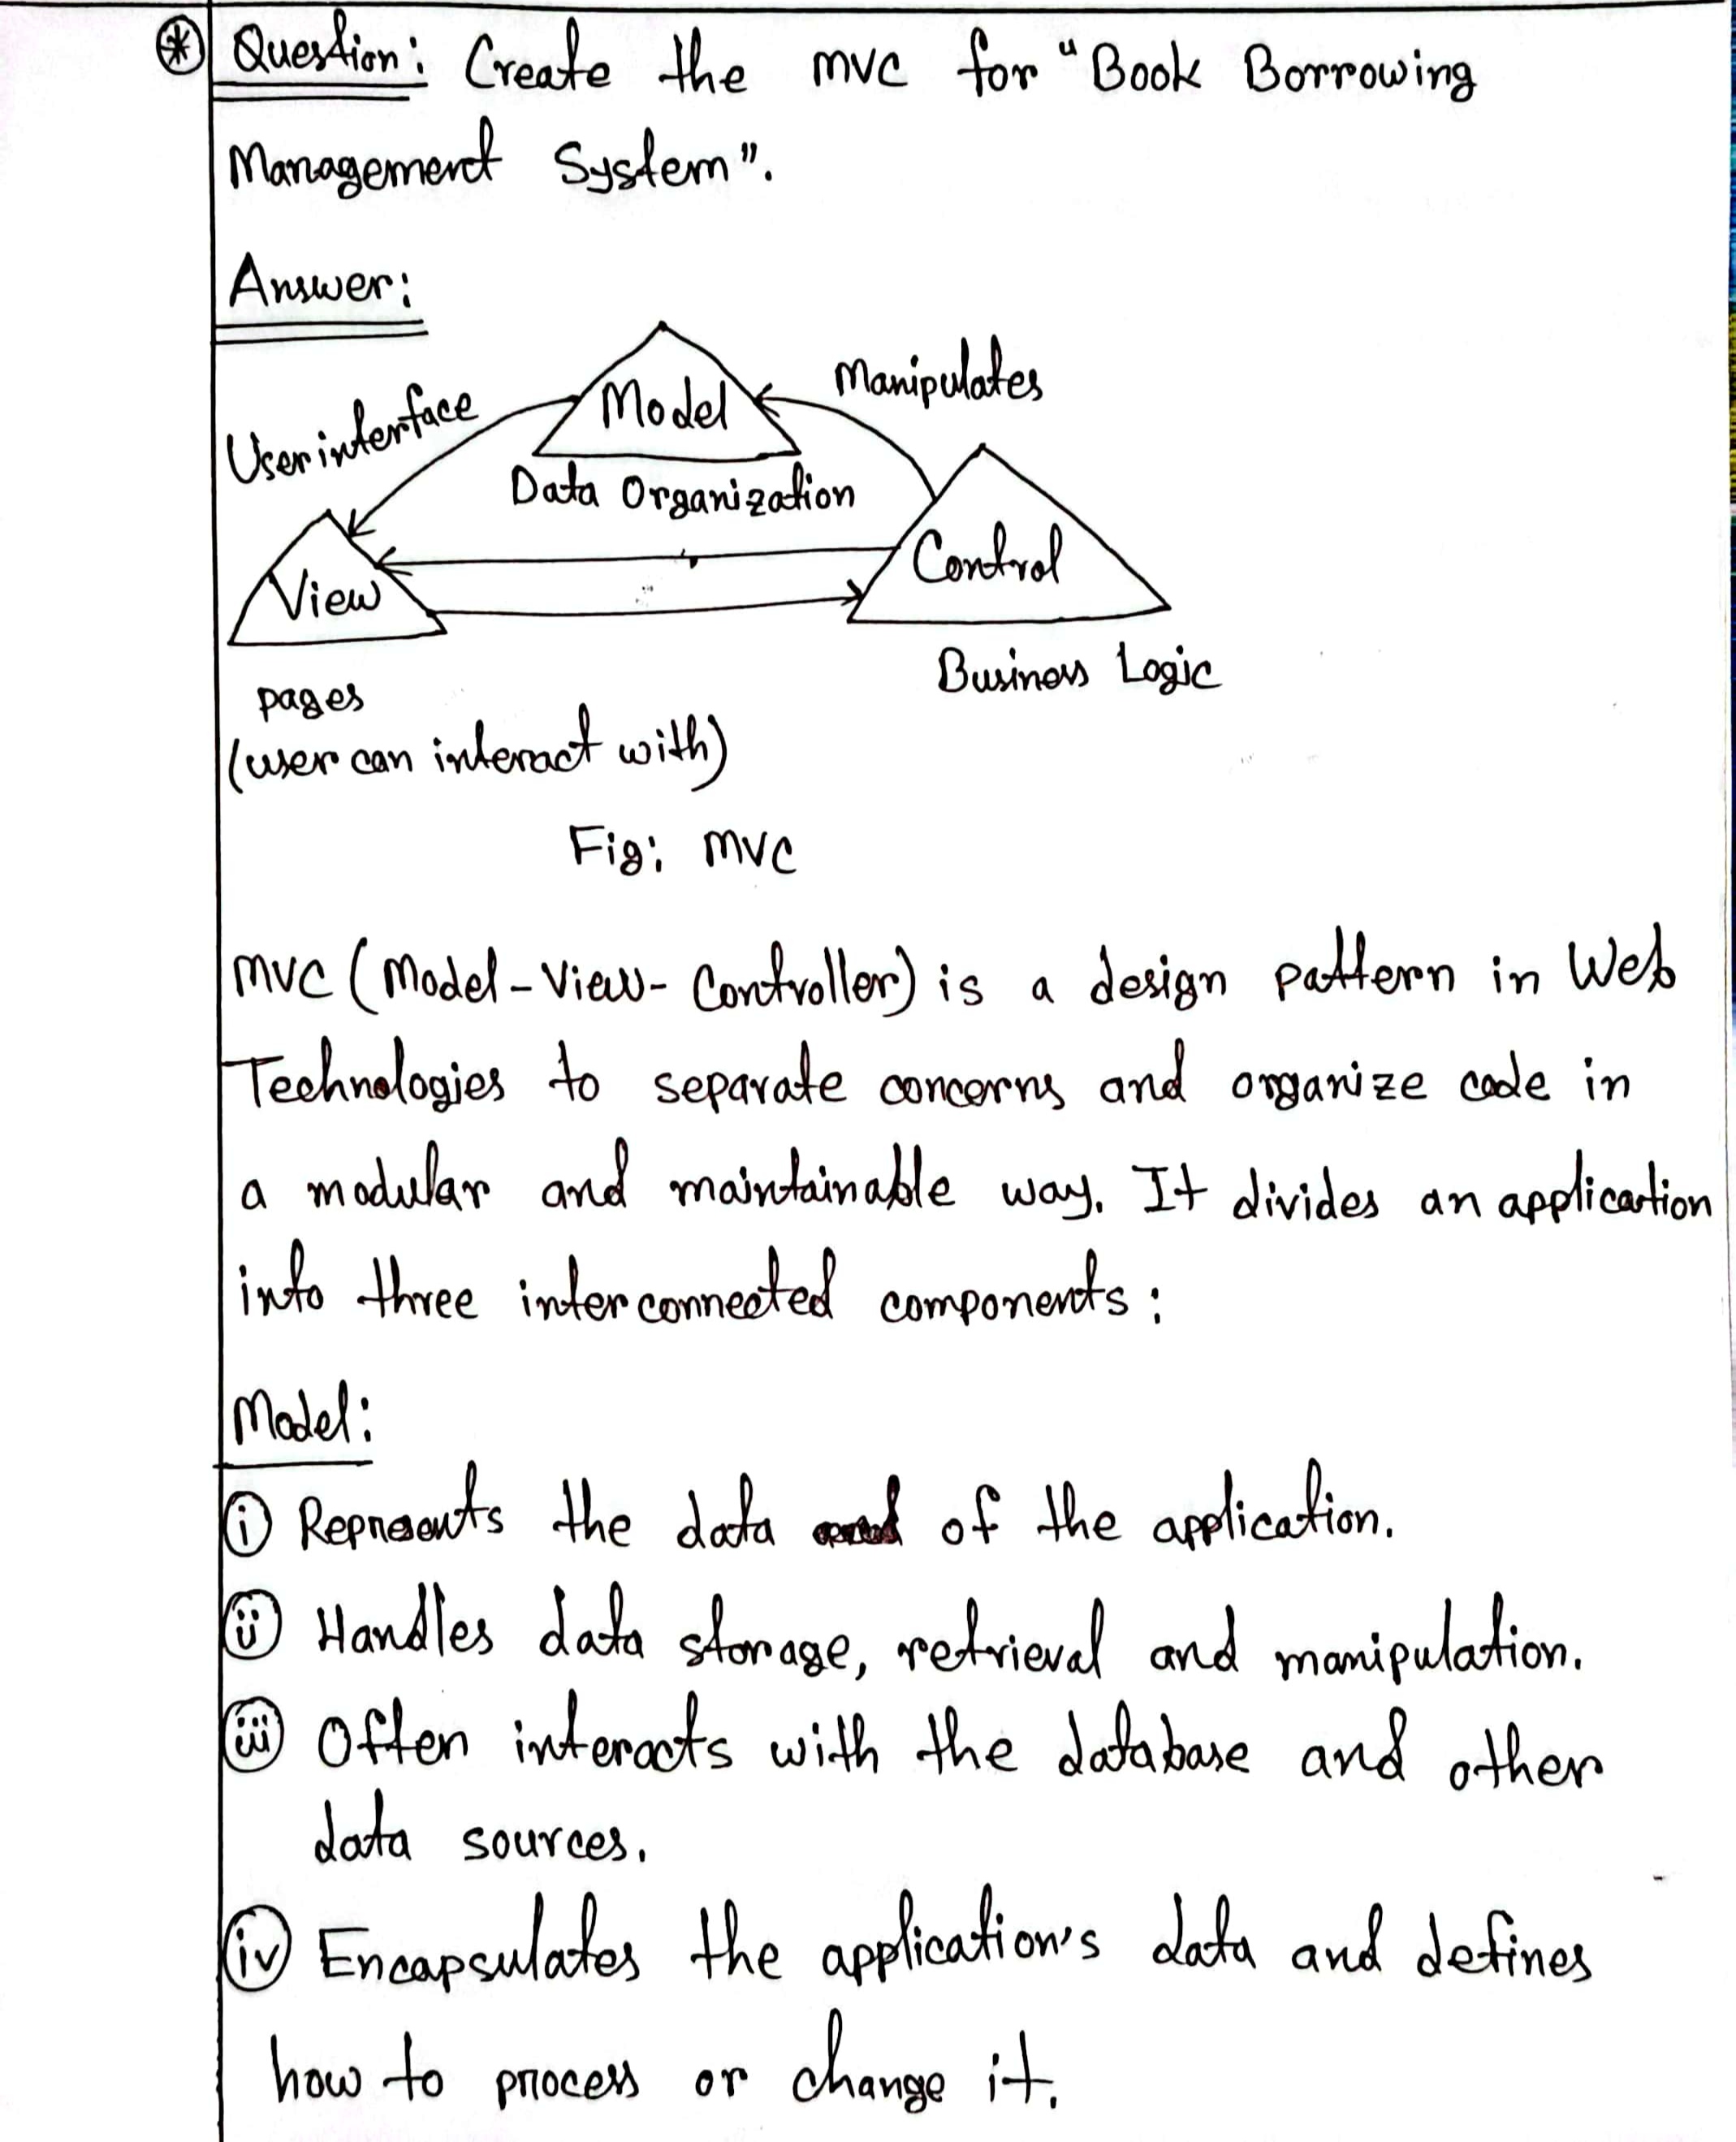 * Question: Create the MVC for "Book Borrowing
Management System".
Answer:
Model
Manipulates
User interface
Data Organization
Control
View
Business Logic
pages
(user can interact with)
Fig: MVC
MVC (Model-View-Controller) is a design pattern in Web
Technologies to separate concerns and organize code in
a modular and maintainable way. It divides an application
into three interconnected components:
Model:
i Represents the data of the application.
ii Handles data storage, retrieval and manipulation.
iii Often interacts with the database and other
data sources.
iv Encapsulates the application's data and defines
how to process or change it.